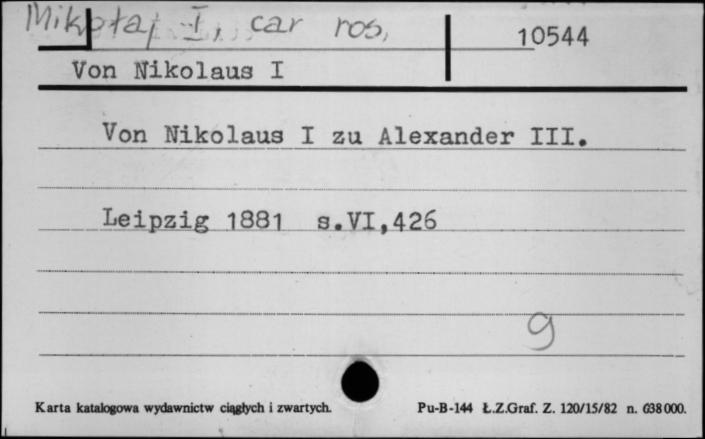 Mikołaj I, car ros,
10544
Von Nikolaus I
Von Nikolaus I zu Alexander III.
Leipzig 1881 s.VI,426
g
Karta katalogowa wydawnictw ciągłych i zwartych. Pu-B-144 Ł.Z.Graf. Z. 120/15/82 n. 638000.